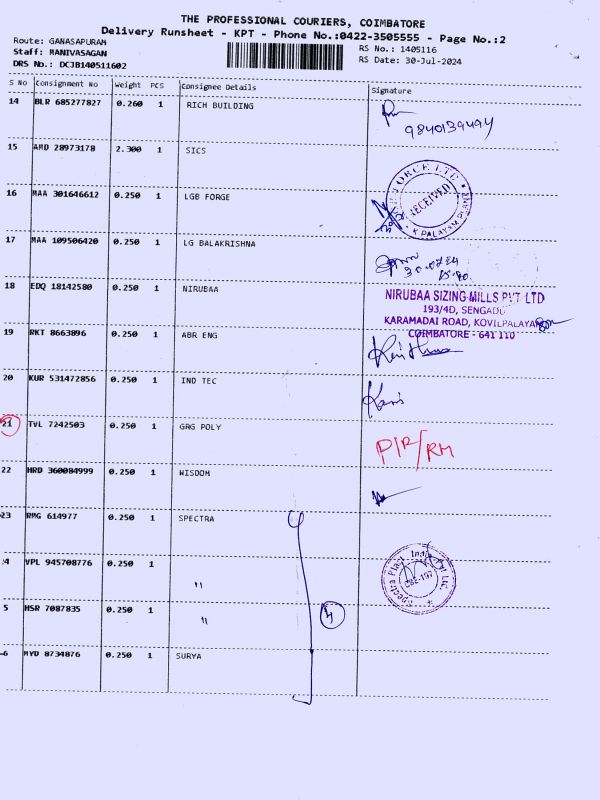 THE PROFESSIONAL COURIERS, COIMBATORE
Delivery Runsheet - KPT - Phone No.:0422-3505555 - Page No.:2
Route: GANASAPURAM
RS No.: 1405116
Staff: MANIVASAGAN
RS Date: 30-Jul-2024
DRS No.: DCJB140511602
S No Consignment No Weight PCS Consignee Details Signature
14 BLR 685277827 0.260 1 RICH BUILDING
9840139494
15 AMD 28973178 2.300 1 SICS
16 MAA 301646612 0.250 1 LGB FORGE
RECEIVED
17 MAA 109506420 0.250 1 LG BALAKRISHNA
18 EDQ 18142580 0.250 1 NIRUBAA
NIRUBAA SIZING MILLS PVT LTD
193/4D, SENGADU
KARAMADAI ROAD, KOVILPALAYAM
COIMBATORE - 641 110
19 RKT 8663896 0.250 1 ABR ENG
20 KUR 531472856 0.250 1 IND TEC
21 TVL 7242503 0.250 1 GRG POLY
P/R/RM
22 HRD 360084999 0.250 1 WISDOM
23 RMG 614977 0.250 1 SPECTRA
4 VPL 945708776 0.250 1 "
Spectra Plast India Pvt Ltd.
5 HSR 7087835 0.250 1 "
4
6 MYD 8734876 0.250 1 SURYA